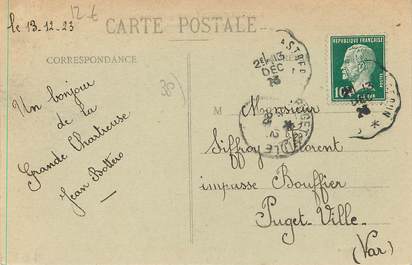 12 €
le 13-12-23
CARTE POSTALE
CORRESPONDANCE
Un bonjour
de la
Grande Chartreuse
Jean Bottero
RÉPUBLIQUE FRANÇAISE
POSTES
10
M
Monsieur
Siffroy Florent
impasse Bouffier
Puget-Ville
(Var)
13
DEC
23